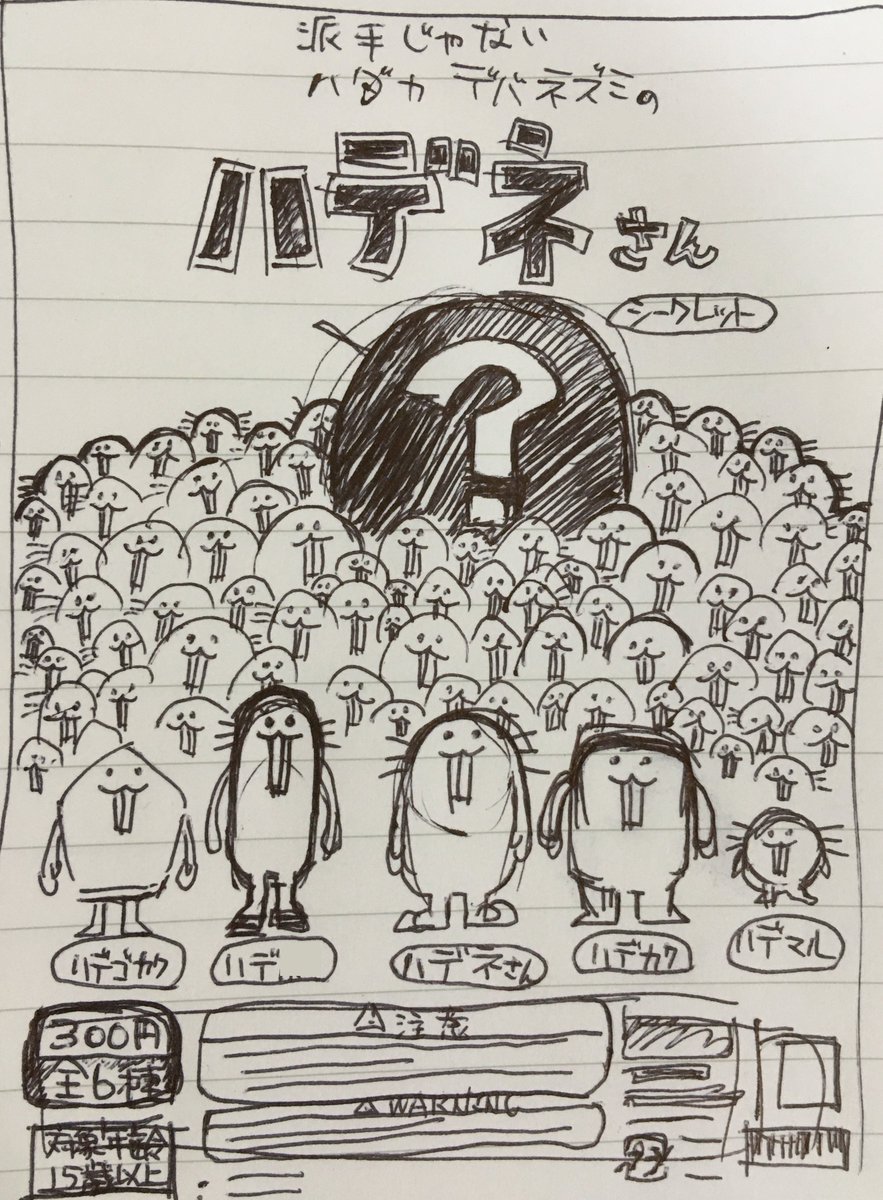 派手じゃない
ハダカデバネズミの
ハデネさん
シークレット
ハデゴカク
ハデ...
ハデネさん
ハデカク
ハデマル
300円
全6種
⚠注意
⚠WARNING
対象年齢
15歳以上